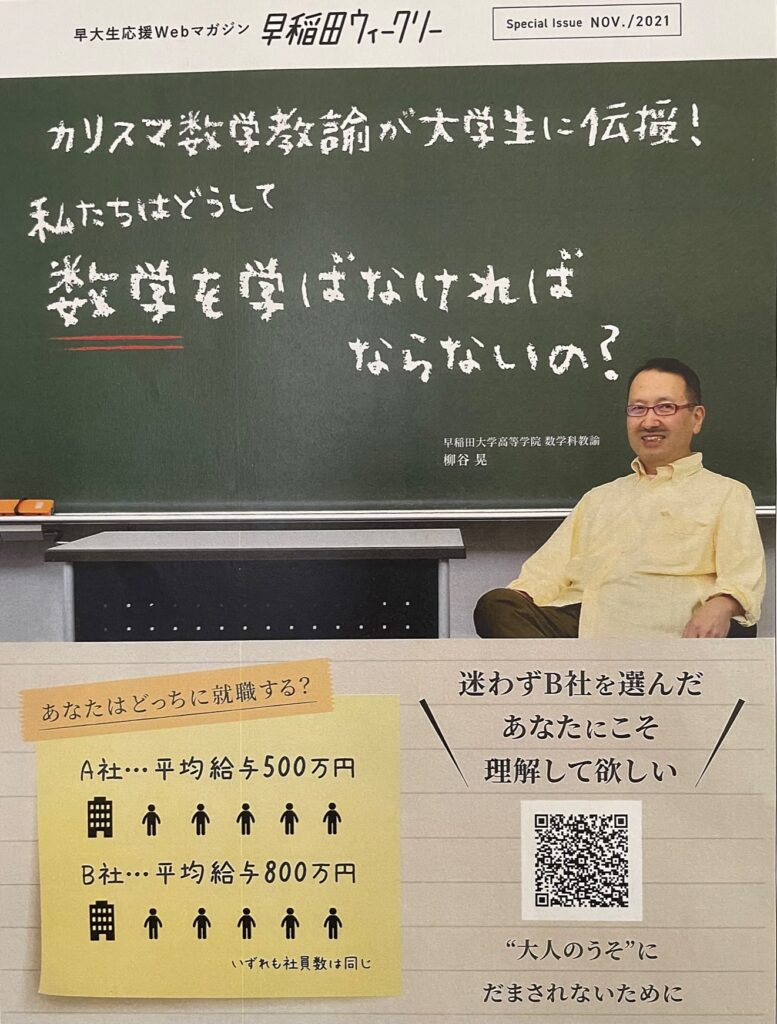 早大生応援Webマガジン 早稲田ウィークリー
Special Issue NOV./2021
カリスマ数学教諭が大学生に伝授!
私たちはどうして
数学を学ばなければ
ならないの?
早稲田大学高等学院 数学科教諭
柳谷 晃
あなたはどっちに就職する?
A社…平均給与500万円
B社…平均給与800万円
いずれも社員数は同じ
迷わずB社を選んだ
あなたにこそ
理解して欲しい
“大人のうそ”に
だまされないために